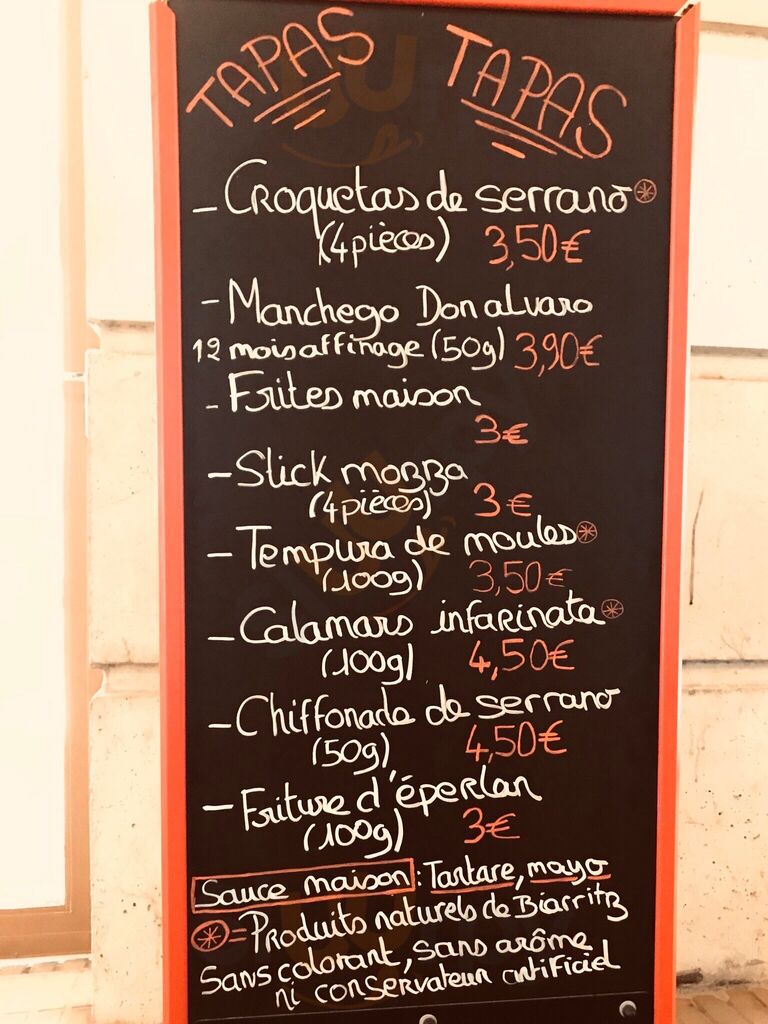 TAPAS TAPAS
- Croquetas de serrano ⊛
(4 pièces) 3,50€
- Manchego Don alvaro
12 mois affinage (50g) 3,90€
- Frites maison
3€
- Stick mozza
(4 pièces) 3€
- Tempura de moules ⊛
(100g) 3,50€
- Calamars infarinata ⊛
(100g) 4,50€
- Chiffonade de serrano
(50g) 4,50€
- Friture d'éperlan
(100g) 3€
Sauce maison : Tartare, mayo
⊛ = Produits naturels de Biarritz
Sans colorant, sans arôme
ni conservateur artificiel